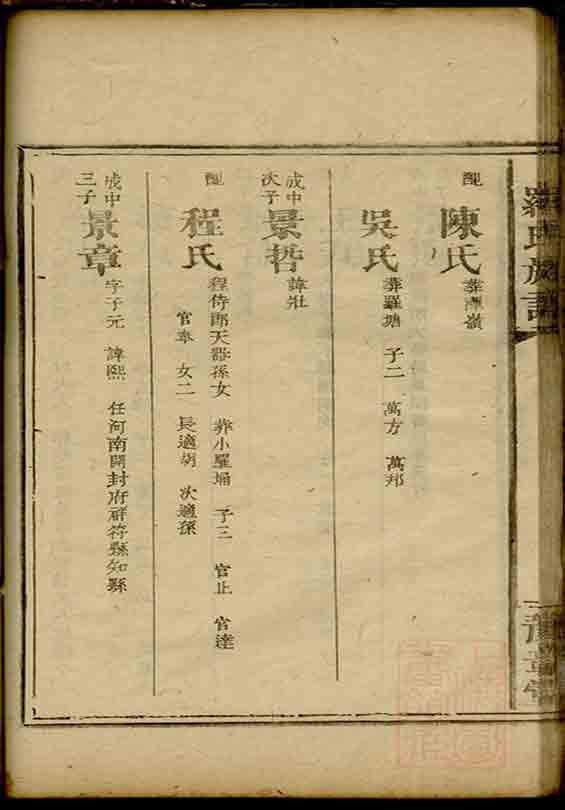 羅氏族譜
配 陳氏 葬潭嶺
吳氏 葬羅塘 子二 萬方 萬邦
成中次子 景哲 諱壯
配 程氏 程侍郎天器孫女 葬小羅埇 子三 官止 官達
官奉 女二 長適胡 次適孫
成中三子 景章 字子元 諱熙 任河南開封府祥符縣知縣